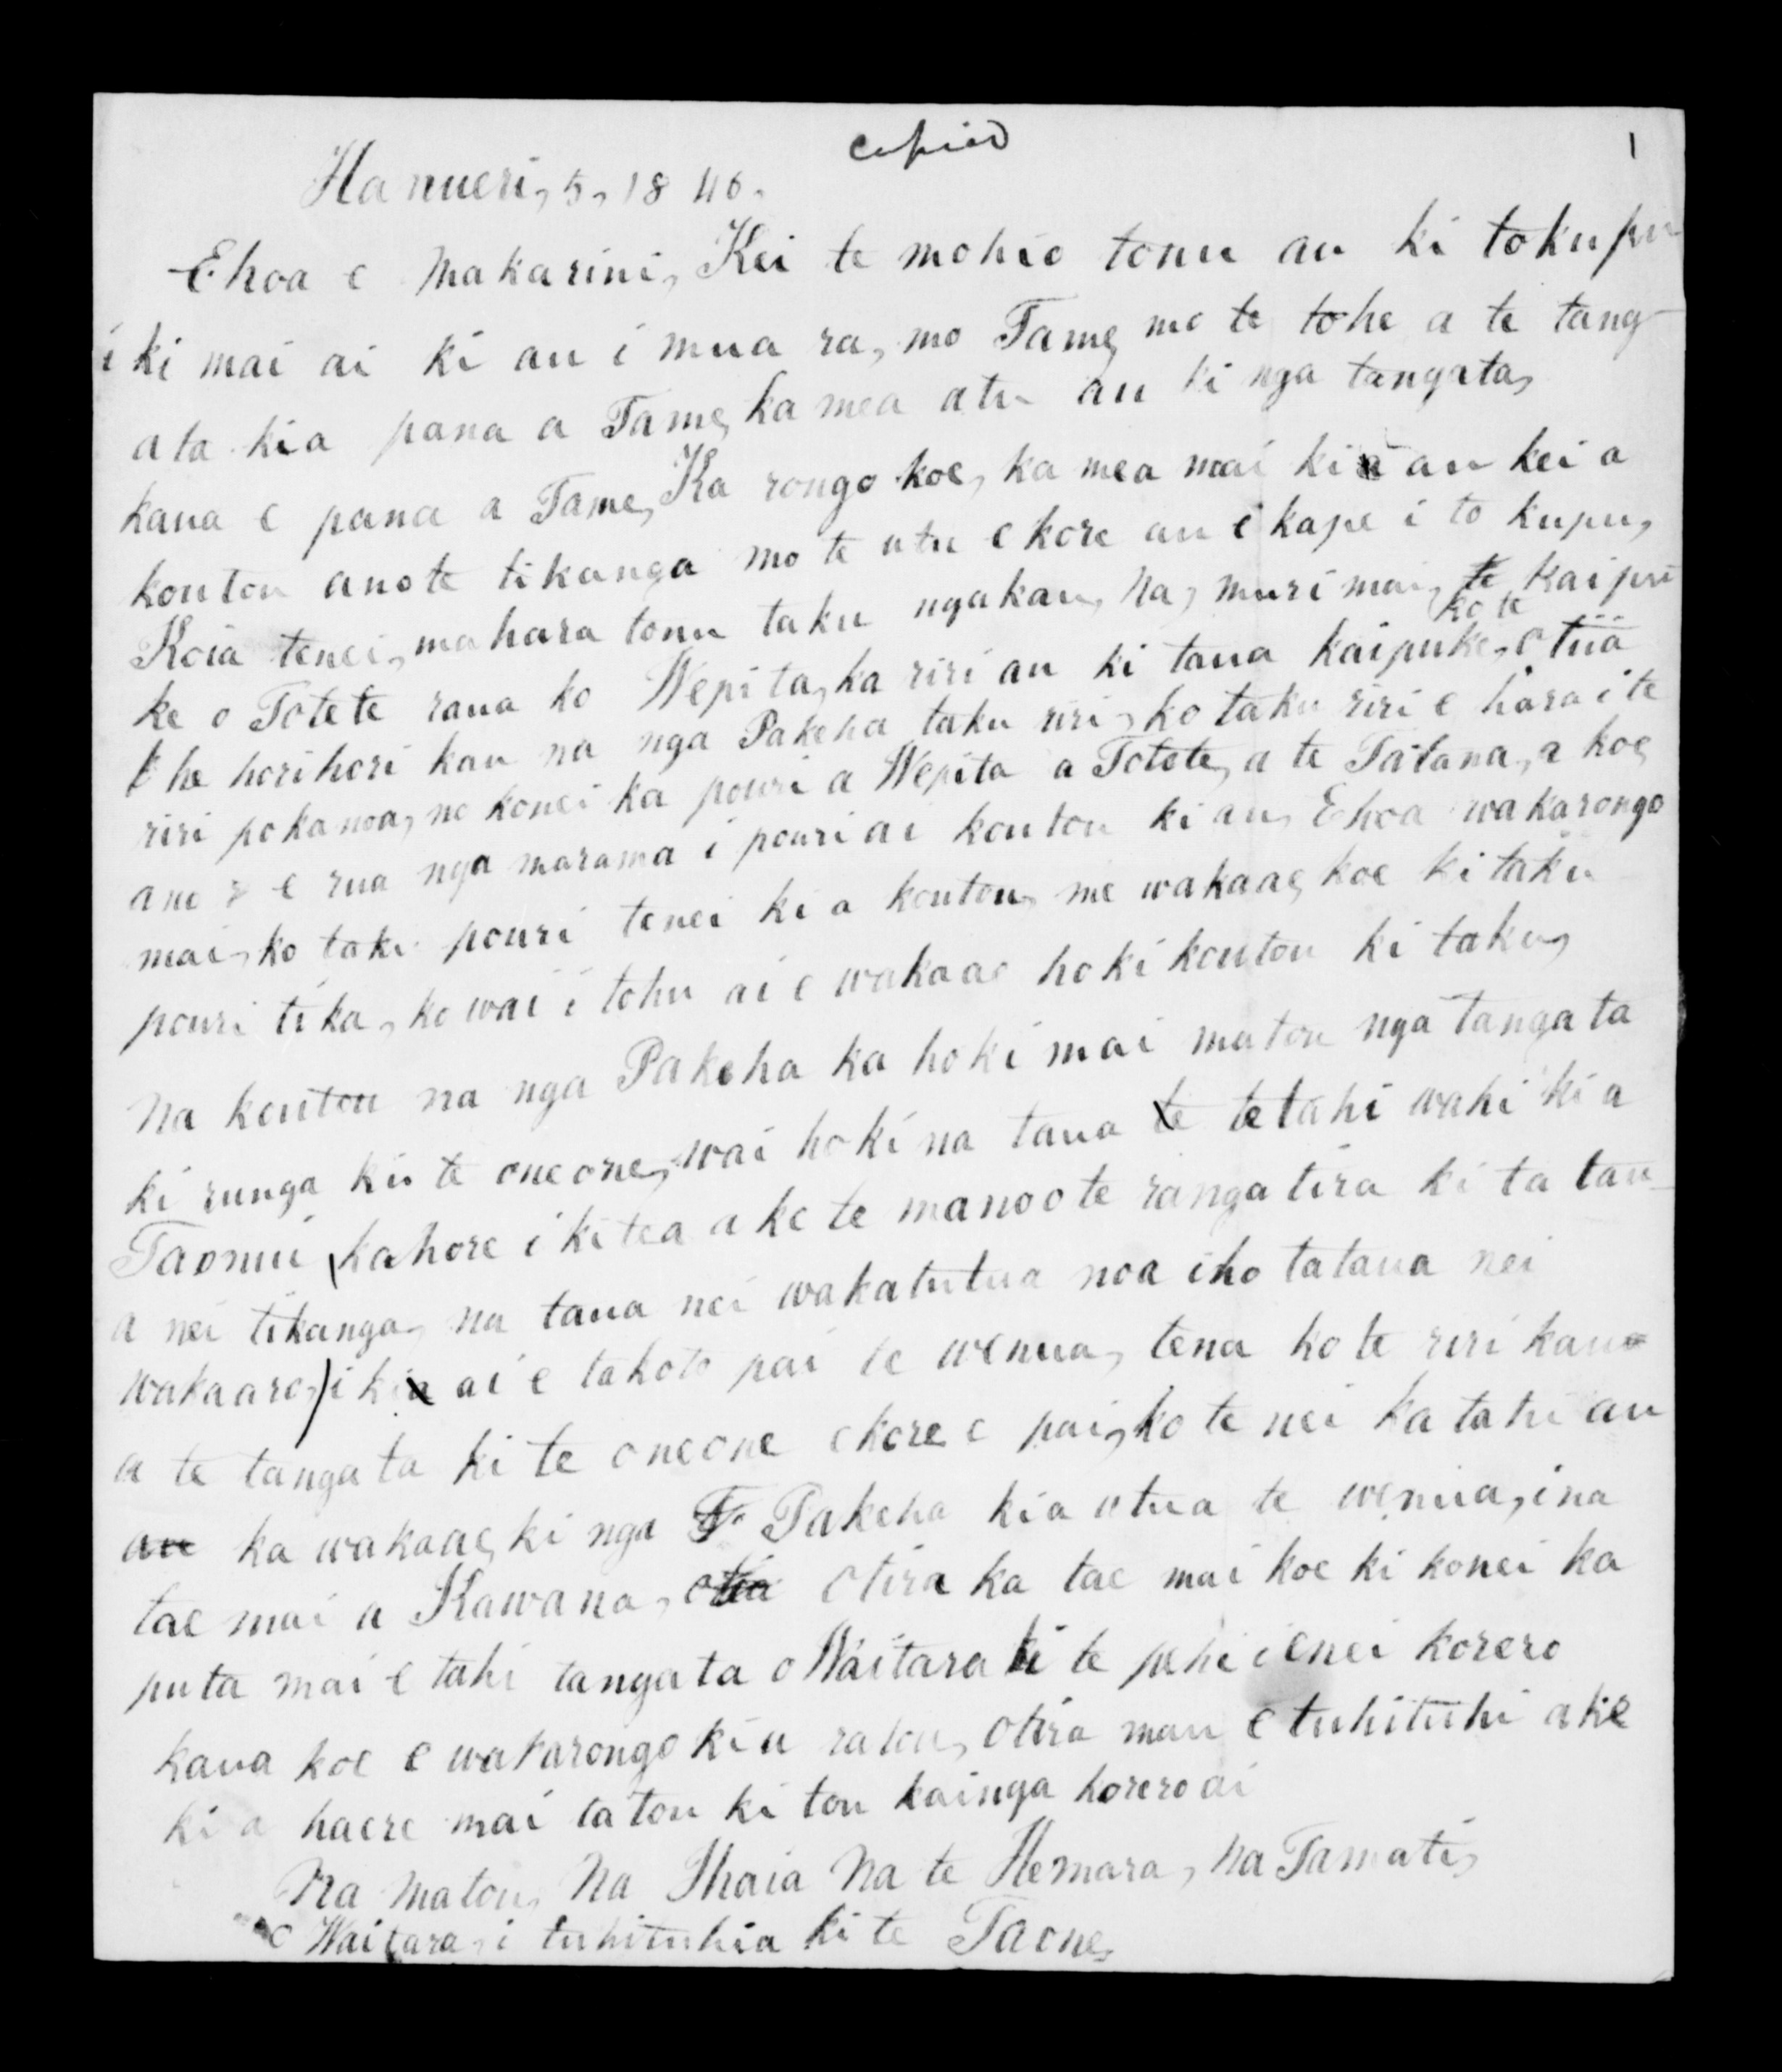 copied
1
Hanueri, 5, 1846,
Ehoa e Makarini, Kei te mohio tonu au ki to kupu
i ki mai ai ki au i mua ra, mo Tame, mo te tohe a te tang
ata kia pana a Tame, ka mea atu au ki nga tangata,
kaua e pana a Tame, Ka rongo koe, ka mea mai ki au kei a
koutou ano te tikanga mo te utu e kore au e kape i to kupu,
Koia tenei, mahara tonu taku ngakau, Na, muri mai, te kaipu
ko te
ke o Totete raua ko Wepiha, ka riri au ki taua kaipuke, otiia
he horihori kau na nga Pakeha taku riri, ko taku riri e hara i te
riri pokanoa, no konei ka pouri a Wepiha a Totete, a te Tatana, a koe
ano e rua nga marama i pouri ai koutou ki au, Ehoa wakarongo
mai, ko taku pouri tenei ki a koutou, me wakaae, koe ki taku
pouri tika, ko wai i tohu ai e wakaae hoki koutou ki taku,
Na koutou na nga Pakeha ka hoki mai matou nga tangata
ki runga ki te oneone, wai hoki na taua te tetahi wahi ki a
Taonui, kahore i kitea ake te manoo te rangatira ki ta tau
a nei tikanga, na taua nei wakatutua noa iho tataua nei
wakaaro, i kia ai e takoto pai te wenua, tena ko te riri kau
a te tangata ki te oneone ekore e pai, ko te nei ka tahi au
au ka wakaae, ki nga Pakeha kia utua te wenua, ina
tae mai a Kawana, otia Otira ka tae mai koe ki konei ka
puta mai e tahi tangata o Waitara ki te pehi i enei korero
kaua koe e wakarongo ki a ratou, otira mau e tuhituhi ake
ki a haere mai tatou ki tou kainga korero ai
Na matou, Na Ihaia Na te Hemara, Na Tamati,
o Waitara, i tuhituhia ki te Taone,